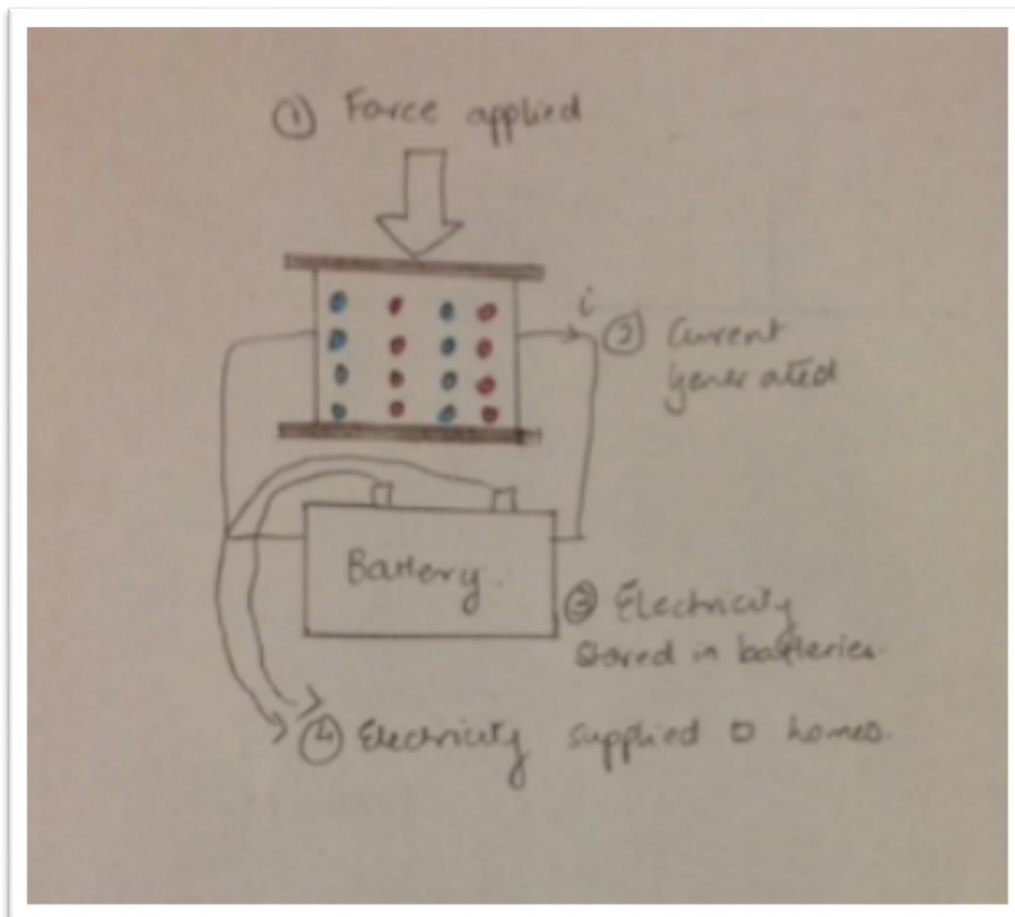 ① Force applied
i
② Current
generated
Battery.
③ Electricity
stored in batteries.
④ Electricity supplied to homes.